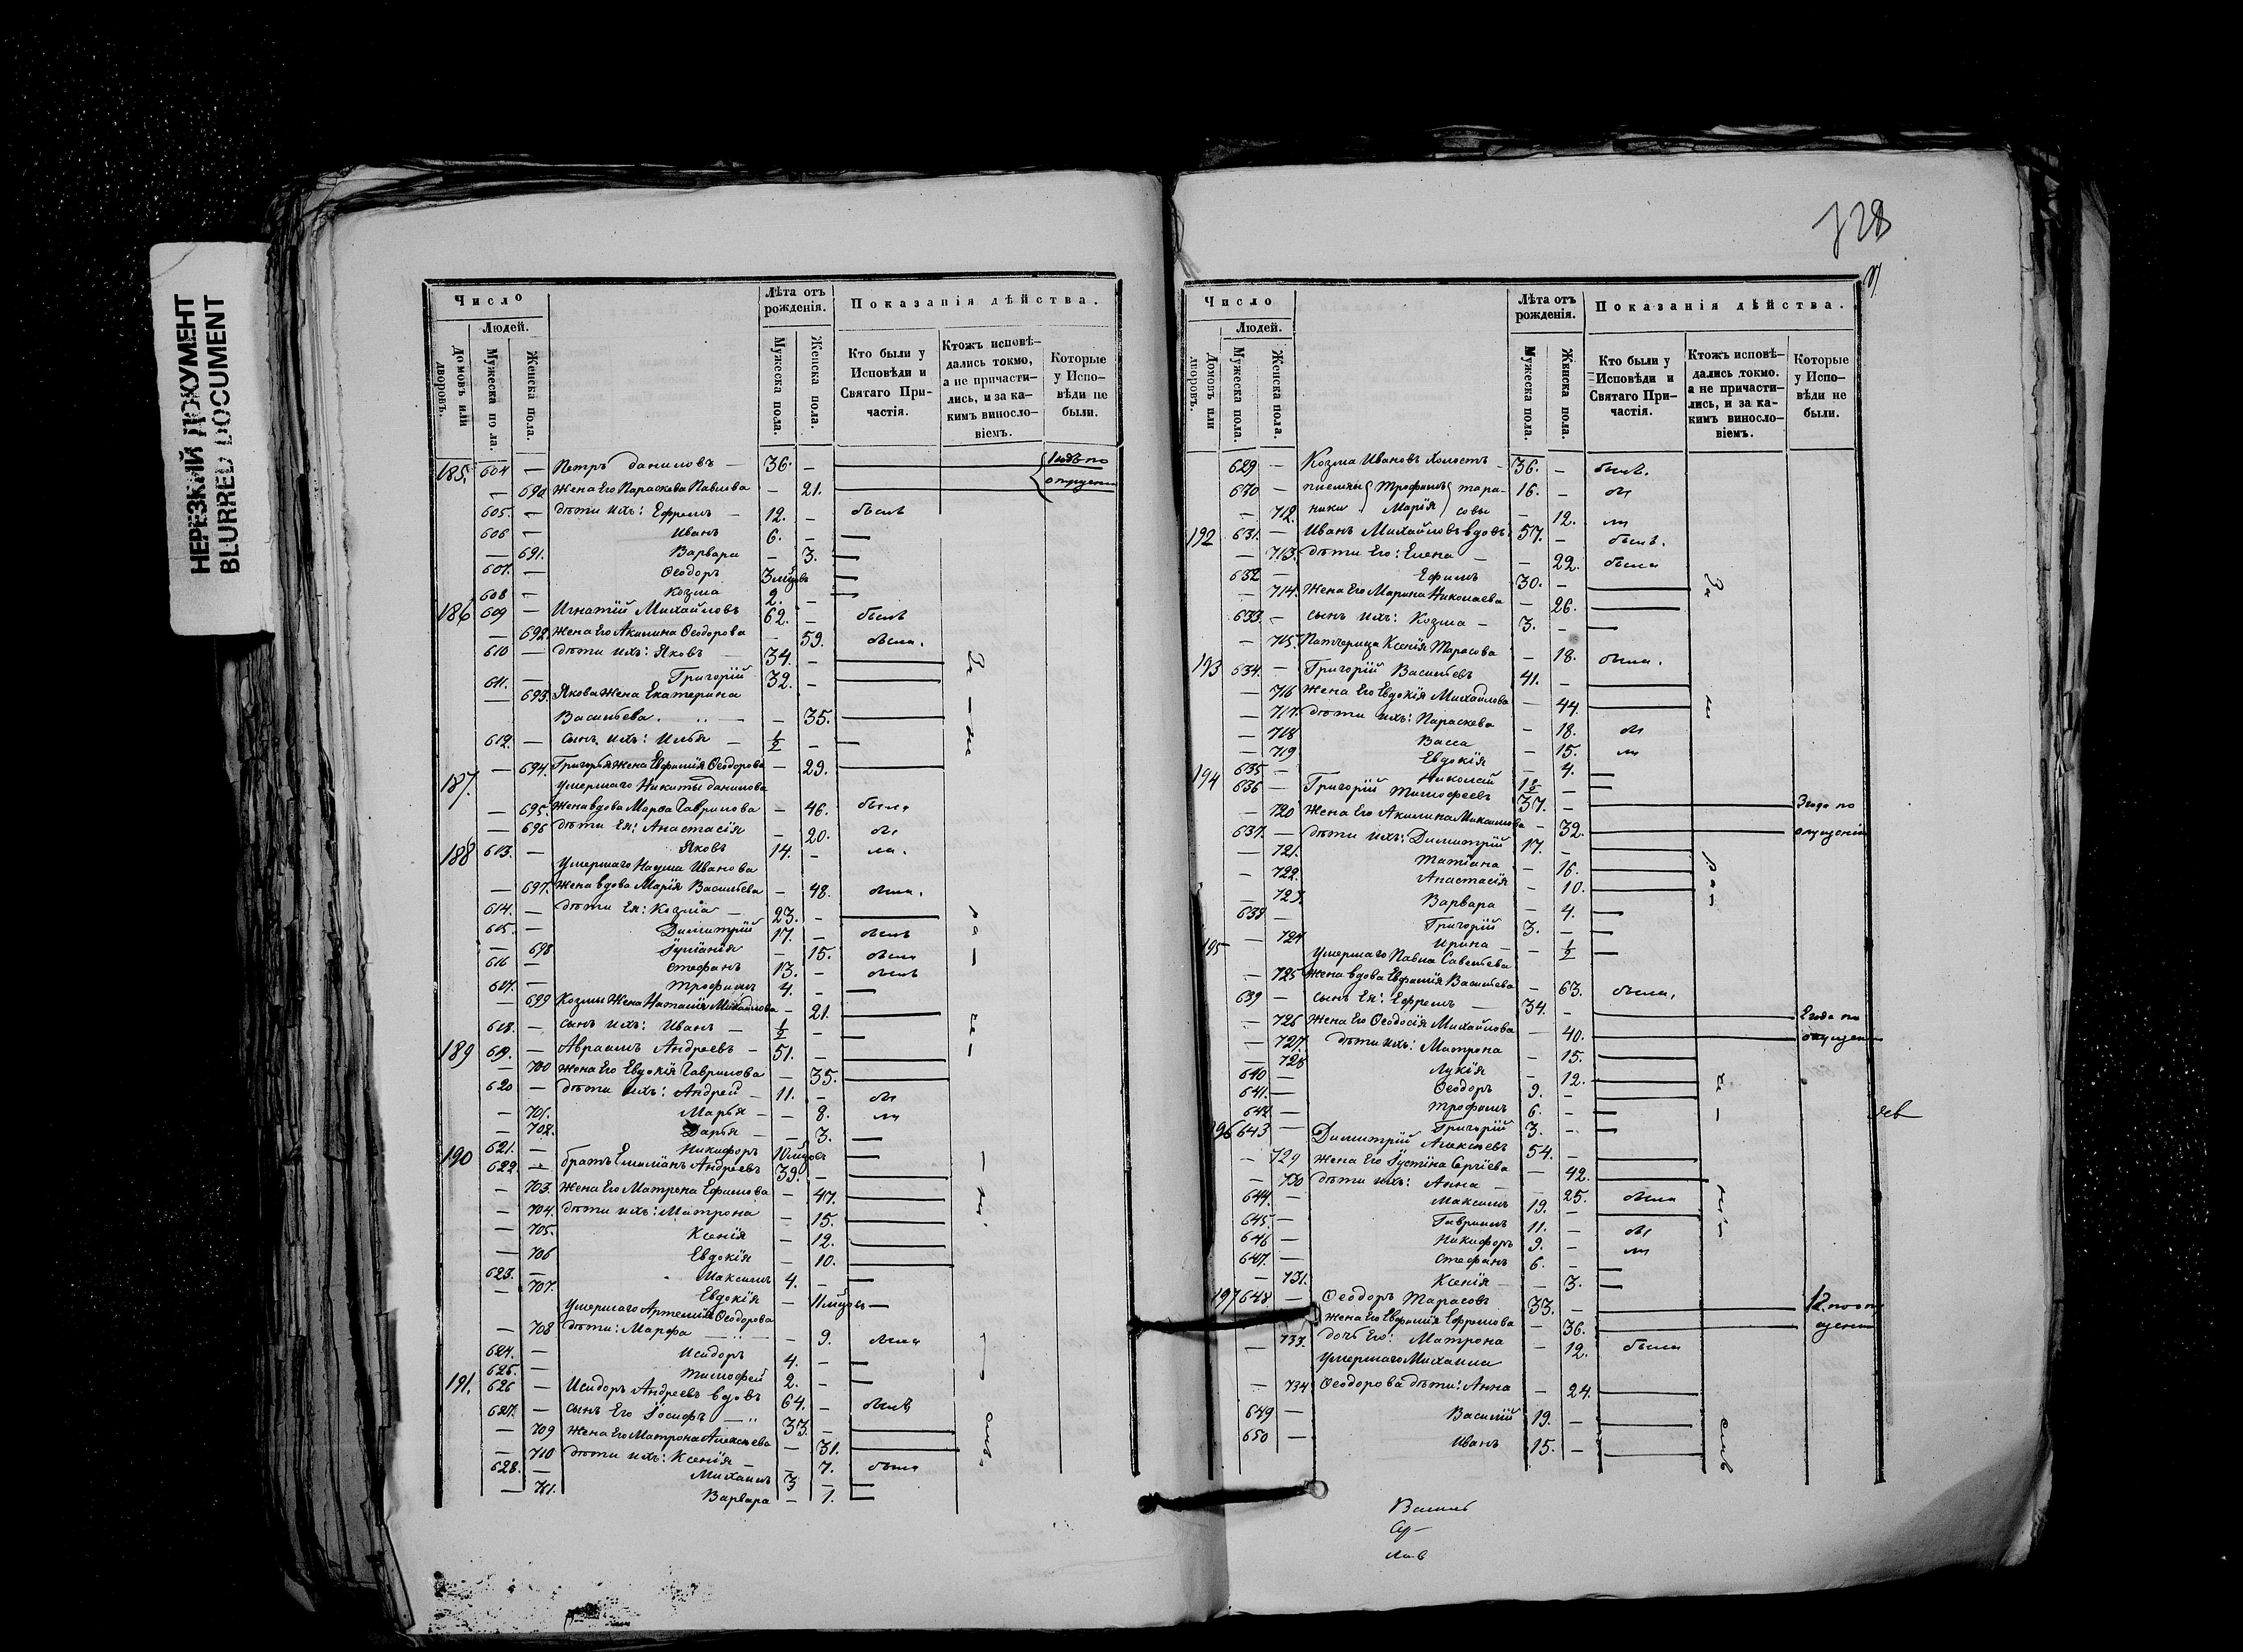 НЕРЕЗКИЙ ДОКУМЕНТ
BLURRED DOCUMENT
728
Число
Людей.
Домовъ или дворовъ.
Мужеска пола.
Женска пола.
Лѣта отъ рожденія.
Мужеска пола.
Женска пола.
Показанія дѣйства.
Кто были у Исповѣди и Святаго Причастія.
Ктожъ исповѣдались токмо, а не причастились, и за какимъ винословіемъ.
Которые у Исповѣди не были.
185. 604 — Петръ Даниловъ — 36. —
— 690 Жена Его Параскева Павлова — 21.
605. — дѣти ихъ: Ефремъ — 12. — былъ
606 — Иванъ 6. —
— 691. Варвара — 3.
607. — Ѳеодоръ 3 мѣсяцъ
608 — Козма 2. —
186 609 — Игнатій Михайловъ 62. — былъ
— 692. Жена Его Акилина Ѳеодорова — 59. была.
610 — дѣти ихъ: Яковъ 34. —
611. — Григорій 32. —
— 693. Якова Жена Екатерина
Васильева. — 35.
612. — сынъ ихъ: Илья — ½ —
— 694. Григорья Жена Евфимія Ѳеодорова — 29.
187. умершаго Никиты Данилова
— 695. Жена вдова Марѳа Гаврилова — 46. была
— 696 дѣти Ея: Анастасія — 20.
613. — Яковъ 14. —
188 умершаго Наума Иванова
— 697. Жена вдова Марія Васильева — 48. была.
614. — дѣти Ея: Козма — 23. —
615. — Димитрій 17. — былъ
— 698 Іуліанія — 15. была
616 — Стефанъ 13. — былъ
617. — Трофимъ 4. —
— 699 Козмы Жена Наталія Михайлова — 21.
618. — сынъ ихъ: Иванъ — ½ —
189 619. — Авраамъ Андреевъ — 51. —
— 700 Жена Его Евдокія Гаврилова — 35.
620 — дѣти ихъ: Андрей — 11. —
— 701. Марья — — 8.
— 702. Дарья — — 3.
621. — Никифоръ 10 мѣсяцъ
190 622. — братъ Емиліанъ Андреевъ 39. —
— 703. Жена Его Матрона Ефимова — 47.
— 704. дѣти ихъ: Матрона — 15.
— 705. Ксенія — 12.
— 706 Евдокія — 10.
623. — Максимъ 4. —
— 707. Евдокія — 11 мѣсяцъ
умершаго Артемія Ѳеодорова
— 708 дѣти: Марфа — 9. была
624. — Исидоръ 4. —
625. — Тимофей 2. —
191. 626 — Исидоръ Андреевъ вдовъ 64. — былъ
627. — сынъ Его Іосифъ — 33. —
— 709 Жена Его Матрона Алексѣева — 31.
— 710 дѣти ихъ: Ксенія — — 7. была
628. — Михаилъ 3 —
— 711. Варвара — 1.
Число
Людей.
Домовъ или дворовъ.
Мужеска пола.
Женска пола.
Лѣта отъ рожденія.
Мужеска пола.
Женска пола.
Показанія дѣйства.
Кто были у Исповѣди и Святаго Причастія.
Ктожъ исповѣдались токмо. а не причастились, и за какимъ винословіемъ.
Которые у Исповѣди не были.
629 — Козма Ивановъ холостъ — 36. — былъ.
630 — племян { Трофимъ } Тара- 16. —
— 712. ники Марія совы — 12.
192 631. — Иванъ Михайловъ вдовъ 57. — былъ.
— 713. дѣти Его: Елена — — 22. была
632 — Ефимъ 30. —
— 714. Жена Его Марина Николаева — 26.
633 — сынъ ихъ: Козма — 3. —
— 715. Патчерица Ксенія Тарасова — 18. была.
193 634. — Григорій Васильевъ 41. —
— 716 Жена Его Евдокія Михайлова — 44.
— 717. дѣти ихъ: Параскева — 18.
— 718 Васса — 15.
— 719 Евдокія — 4.
635 — Николай 1½ —
194 636 — Григорій Тимофеевъ 37. — 3 года по
— 720 Жена Его Акилина Михайлова — 32. опущенію
637. — дѣти ихъ: Димитрій 17. —
— 721. Татіана — 16.
— 722. Анастасія — 10.
— 723. Варвара — 4.
638 — Григорій 3. —
— 724 Ирина — — ½
195 умершаго Павла Савельева
— 725 Жена вдова Евфимія Васильева — 63. была.
639 — сынъ Ея: Ефремъ — 34. —
— 726 Жена Его Ѳеодосія Михайлова — 40.
— 727. дѣти ихъ: Матрона — 15.
— 728 Лукія — 12.
640 — Ѳеодоръ 9. —
641. — Трофимъ 6. —
642 — Григорій 3. —
196 643 — Димитрій Алексѣевъ 54. —
— 729 Жена Его Іустина Сергіева — 42.
— 730 дѣти ихъ: Анна — — 25. была
644. — Максимъ 19. —
645. — Гавріилъ 11. —
646 — Никифоръ 9. —
647. — Стефанъ 6. —
— 731. Ксенія — — 3.
197 648. — Ѳеодоръ Тарасовъ 33. —
Жена Его Евфимія Ефремова — 36.
— 733. дочь Его: Матрона — 12. была
умершаго Михаила
— 734 Ѳеодорова дѣти: Анна — 24.
649 — Василій 19. —
650 — Иванъ 15. —